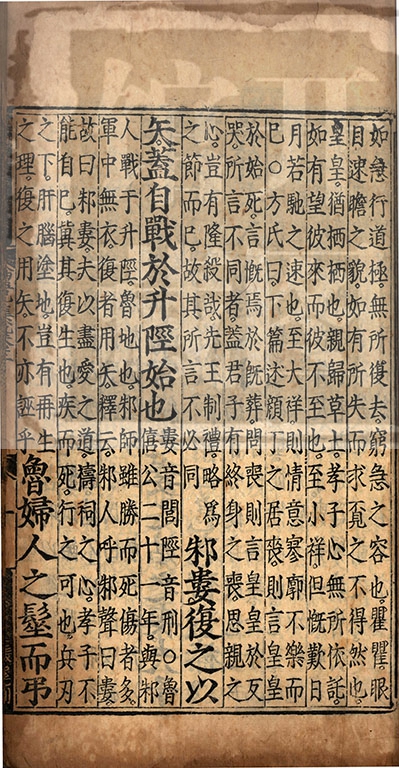 如急行道極無所復去窮急之容也瞿瞿眼
目速瞻之貌如有所失而求覓之不得然也
皇皇猶栖栖也親歸草土孝子心無所依託
如有望彼來而彼不至也至小祥但慨歎日
月若馳之速也至大祥則情意寥廓不樂而
已○方氏曰下篇述顏丁之居喪則言皇皇
於始死言慨焉於既葬問喪則言皇皇於反
哭所言不同者蓋君子有終身之喪思親之
心豈有隆殺哉先王制禮略為
之節而已故其所言不必同
邾婁復之以
矢蓋自戰於升陘始也
婁音閭陘音刑○魯
僖公二十一年與邾
人戰于升陘魯地也邾師雖勝而死傷者多
軍中無衣復者用矢釋云邾人呼邾聲曰婁
故曰邾婁夫以盡愛之道禱祠之心孝子不
能自已冀其復生也疾而死行之可也兵刃
之下肝腦塗地豈有再生
之理復之用矢不亦誣乎
魯婦人之髽而弔